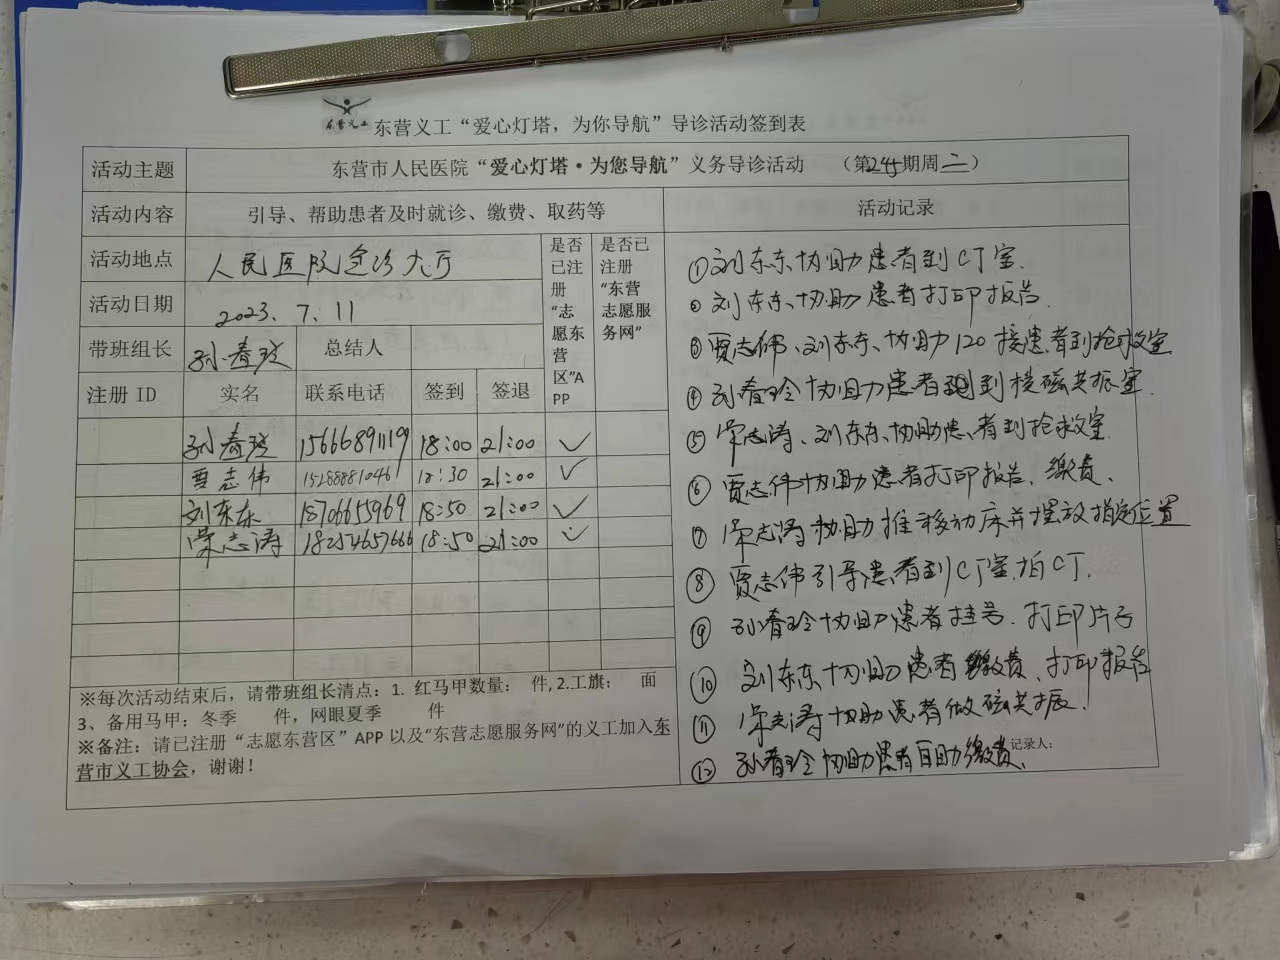 东营义工
东营义工“爱心灯塔，为你导航”导诊活动签到表
活动主题 东营市人民医院“爱心灯塔·为您导航”义务导诊活动 （第245期周二）
活动内容 引导、帮助患者及时就诊、缴费、取药等 活动记录
活动地点 人民医院急诊大厅
是否已注册“志愿东营区”APP
是否已注册“东营志愿服务网”
活动日期 2023.7.11
带班组长 孙春玲 总结人
注册 ID 实名 联系电话 签到 签退
孙春玲 15666891119 18:00 21:00 ✓
贾志伟 15288881046 18:30 21:00 ✓
刘东东 18706655969 18:50 21:00 ✓
荣志涛 18254657666 18:50 21:00 ✓
※每次活动结束后，请带班组长清点：1. 红马甲数量： 件，2.工旗： 面
3、备用马甲：冬季 件，网眼夏季 件
※备注：请已注册“志愿东营区”APP 以及“东营志愿服务网”的义工加入东
营市义工协会，谢谢！
①刘东东协助患者到CT室.
②刘东东协助患者打印报告.
③贾志伟、刘东东、协助120接患者到抢救室
④孙春玲协助患者到核磁共振室.
⑤荣志涛、刘东东协助患者到抢救室.
⑥贾志伟协助患者打印报告、缴费、
⑦荣志涛协助推移动床并摆放指定位置
⑧贾志伟引导患者到CT室.拍CT.
⑨孙春玲协助患者挂号.打印片子
⑩刘东东协助患者缴费、打印报告
⑪荣志涛协助患者做磁共振.
⑫孙春玲协助患者自助缴费.
记录人: